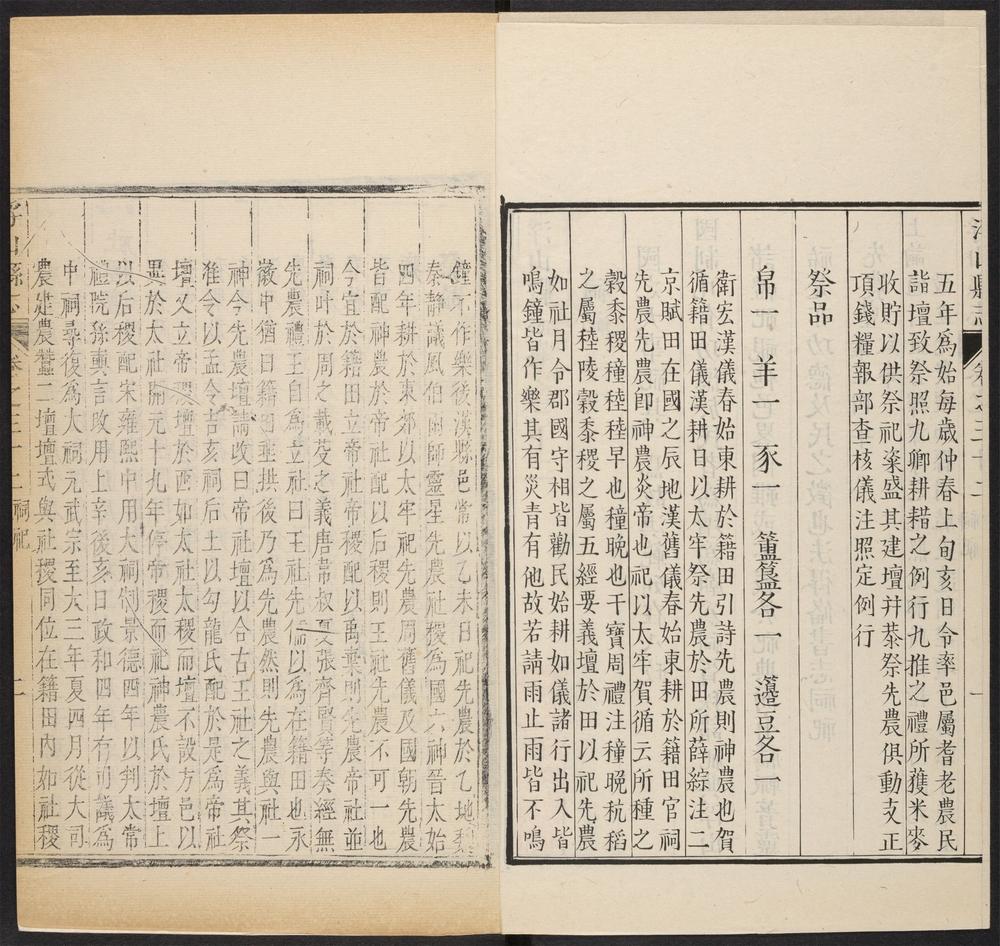 五年爲始每歲仲春上旬亥日令率邑屬耆老農民
詣壇致祭照九卿耕耤之例行九推之禮所穫米麥
收貯以供祭祀粢盛其建壇幷祭先農俱動支正
項錢糧報部查核儀注照定例行
祭品
帛一 羊一 豕一 簠簋各一 籩豆各一
衛宏漢儀春始東耕於籍田引詩先農則神農也賀
循籍田儀漢耕日以太牢祭先農於田所薛綜注二
京賦田在國之辰地漢舊儀春始東耕於籍田官祠
先農先農即神農炎帝也祀以太牢賀循云所種之
穀黍稷穜稑稑早也穜晚也干寶周禮注穜晚秔稻
之屬稑陵穀黍稷之屬五經要義壇於田以祀先農
如社月令郡國守相皆勸民始耕如儀諸行出入皆
鳴鐘皆作樂其有災青有他故若請雨止雨皆不鳴
卷之三十二 祠祀 一
鐘不作樂後漢縣邑常以乙未日祀先農於乙地
秦静議風伯雨師靈星先農社稷爲國六神晉太始
四年耕於東郊以太牢祀先農周舊儀及國朝先農
皆配神農於帝社配以后稷則王社先農不可一也
今宜於籍田立帝社帝稷配以禹棄則先農帝社並
祠叶於周之載芟之義唐韋叔夏張齊賢等奏經無
先農禮王自爲立社曰王社先儒以爲在籍田也永
徽中猶曰籍田垂拱後乃爲先農然則先農與社一
神今先農壇請改曰帝社壇以合古王社之義其祭
准令以孟令吉亥祠后土以勾龍氏配於是爲帝社
壇又立帝稷壇於西如太社太稷而壇不設方色以
異於太社開元十九年停帝稷而祀神農氏於壇上
以后稷配宋雍熙中用大祠制景德四年以判太常
禮院孫奭言改用上辛後亥日政和四年有司議爲
中祠尋復爲大祠元武宗至大三年夏四月從大司
農建農蠶二壇壇式與社稷同位在籍田内如社稷
縣志 卷之三十二 祠祀 二